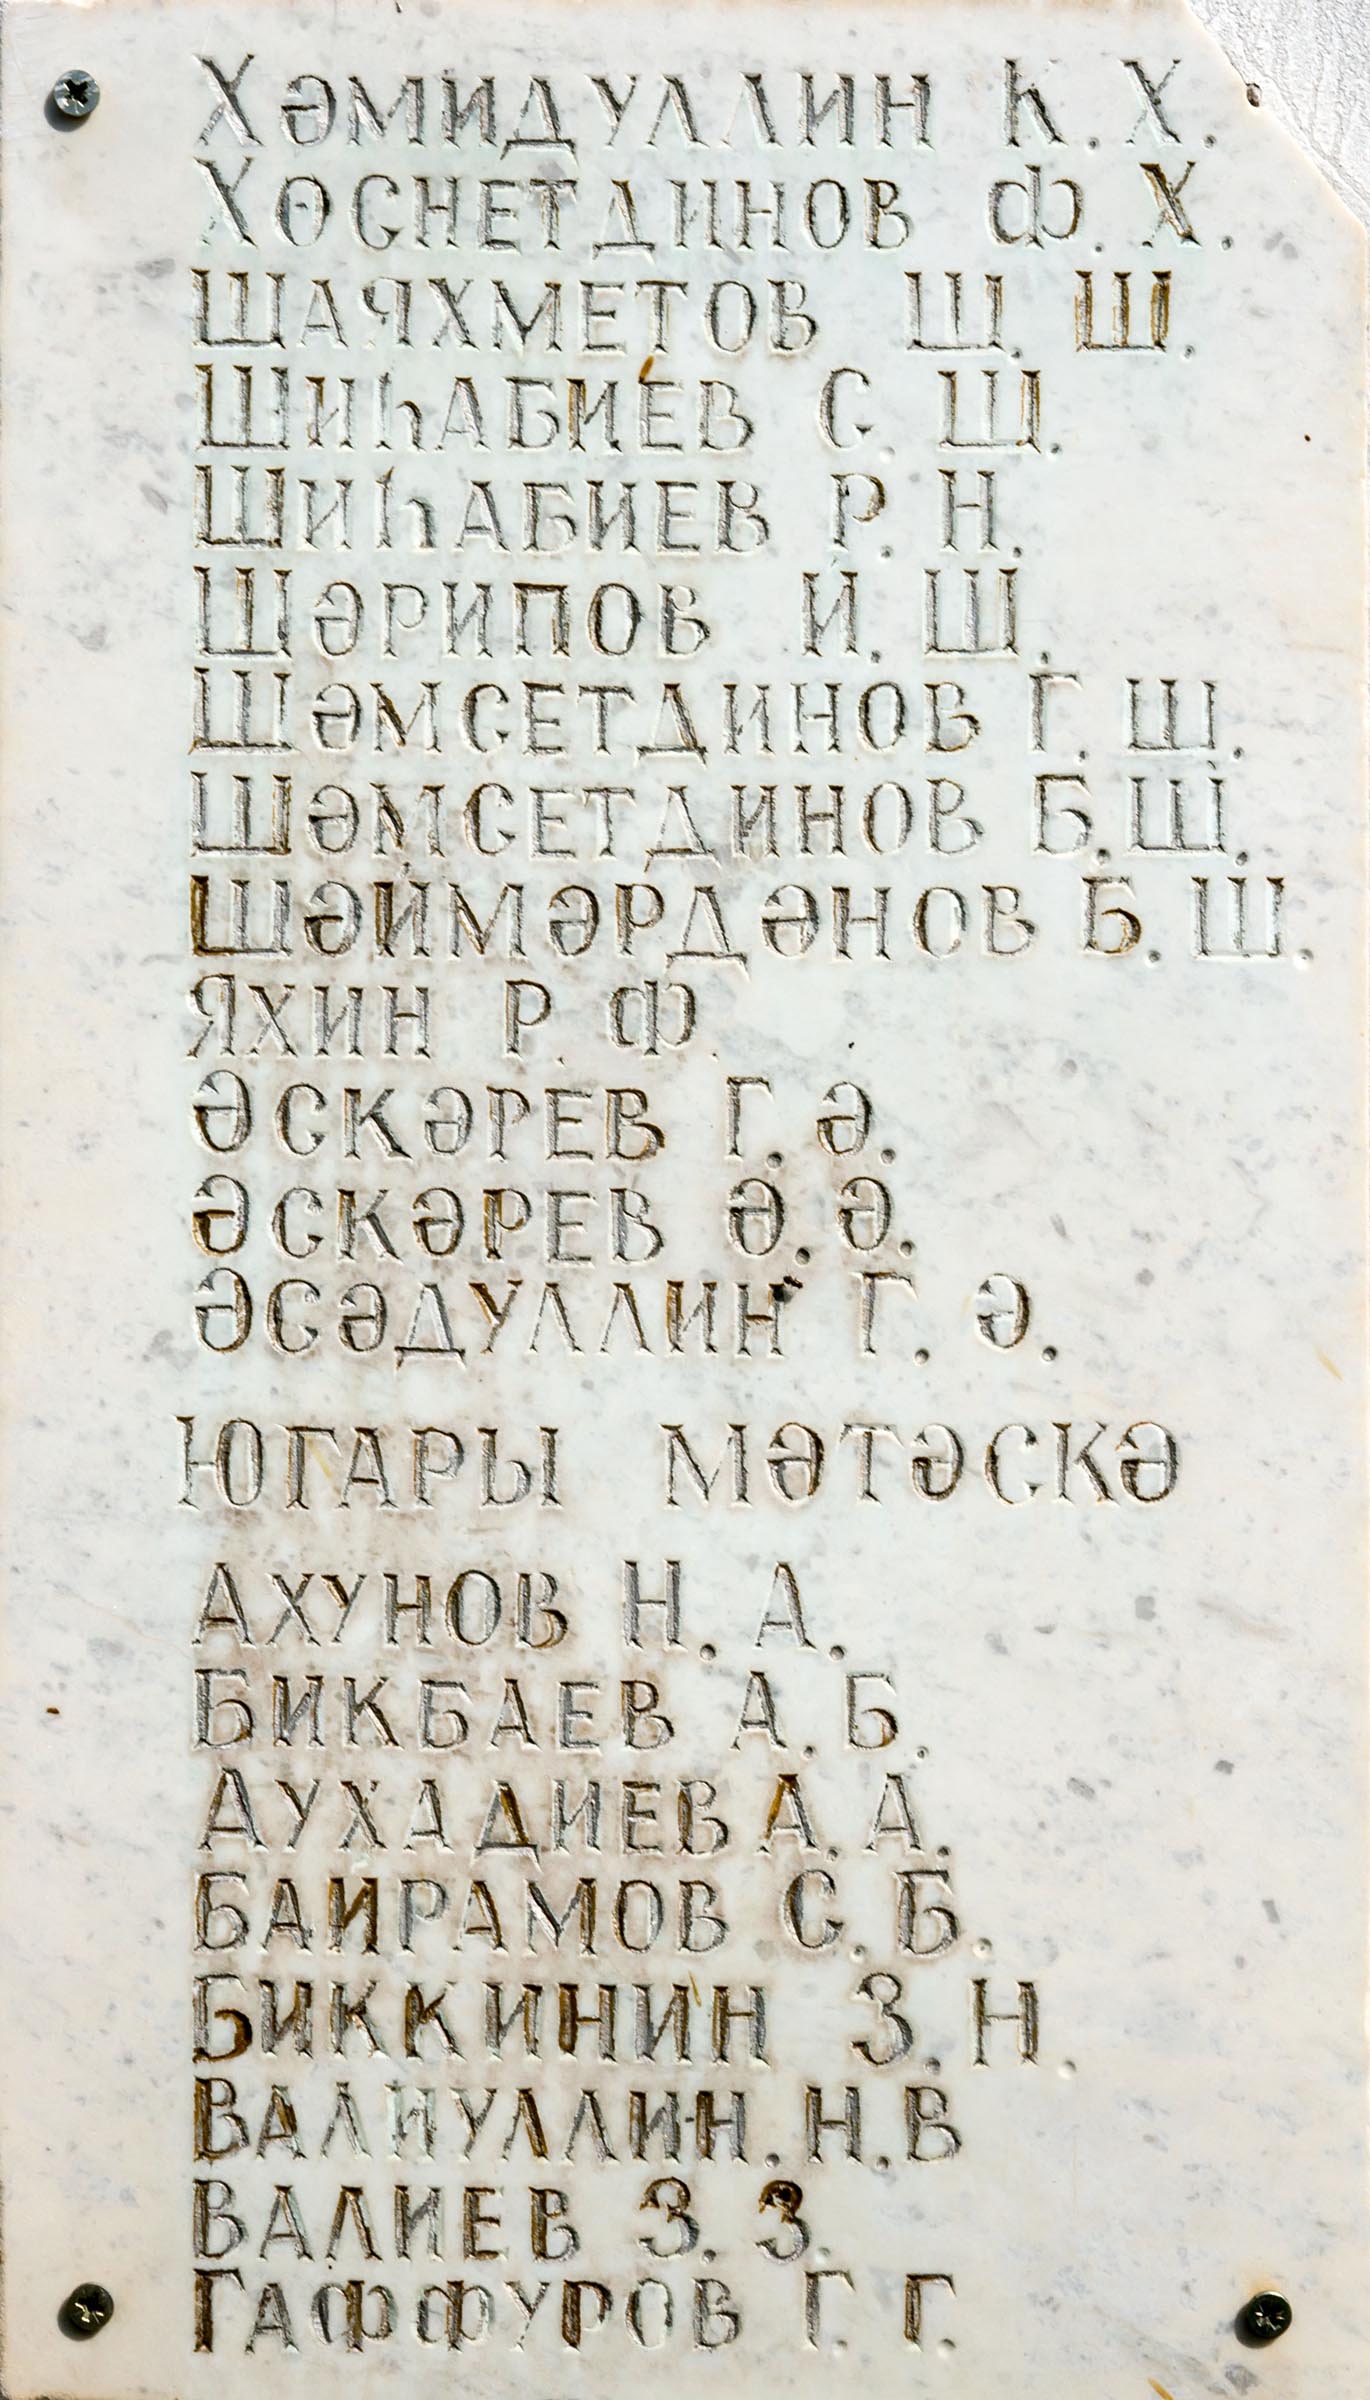 ХӘМИДУЛЛИН К. Х.
ХӨСНЕТДИНОВ Ф. Х.
ШАЯХМЕТОВ Ш. Ш.
ШИҺАБИЕВ С. Ш.
ШИҺАБИЕВ Р. Н.
ШӘРИПОВ И. Ш.
ШӘМСЕТДИНОВ Г. Ш.
ШӘМСЕТДИНОВ Б. Ш.
ШӘЙМӘРДӘНОВ Б. Ш.
ЯХИН Р. Ф.
ӘСКӘРЕВ Г. Ә.
ӘСКӘРЕВ Ә. Ә.
ӘСӘДУЛЛИН Г. Ә.
ЮГАРЫ МӘТӘСКӘ
АХУНОВ Н. А.
БИКБАЕВ А. Б.
АУХАДИЕВ А. А.
БАЙРАМОВ С. Б.
БИККИНИН З. Н.
ВАЛИУЛЛИН. Н. В
ВАЛИЕВ З. З.
ГАФФУРОВ Г. Г.